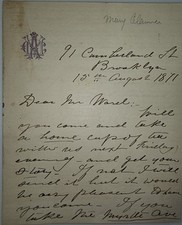 Mary Clemmer
91 Cumberland St
Brooklyn
15th August 1871
Dear Mr Ward. Will
you come and take
an home cup of tea
with us next Friday
evening - and get your
story. If not I will
send it but it would
be as pleasant
you come. If you
take the Myrtle Ave